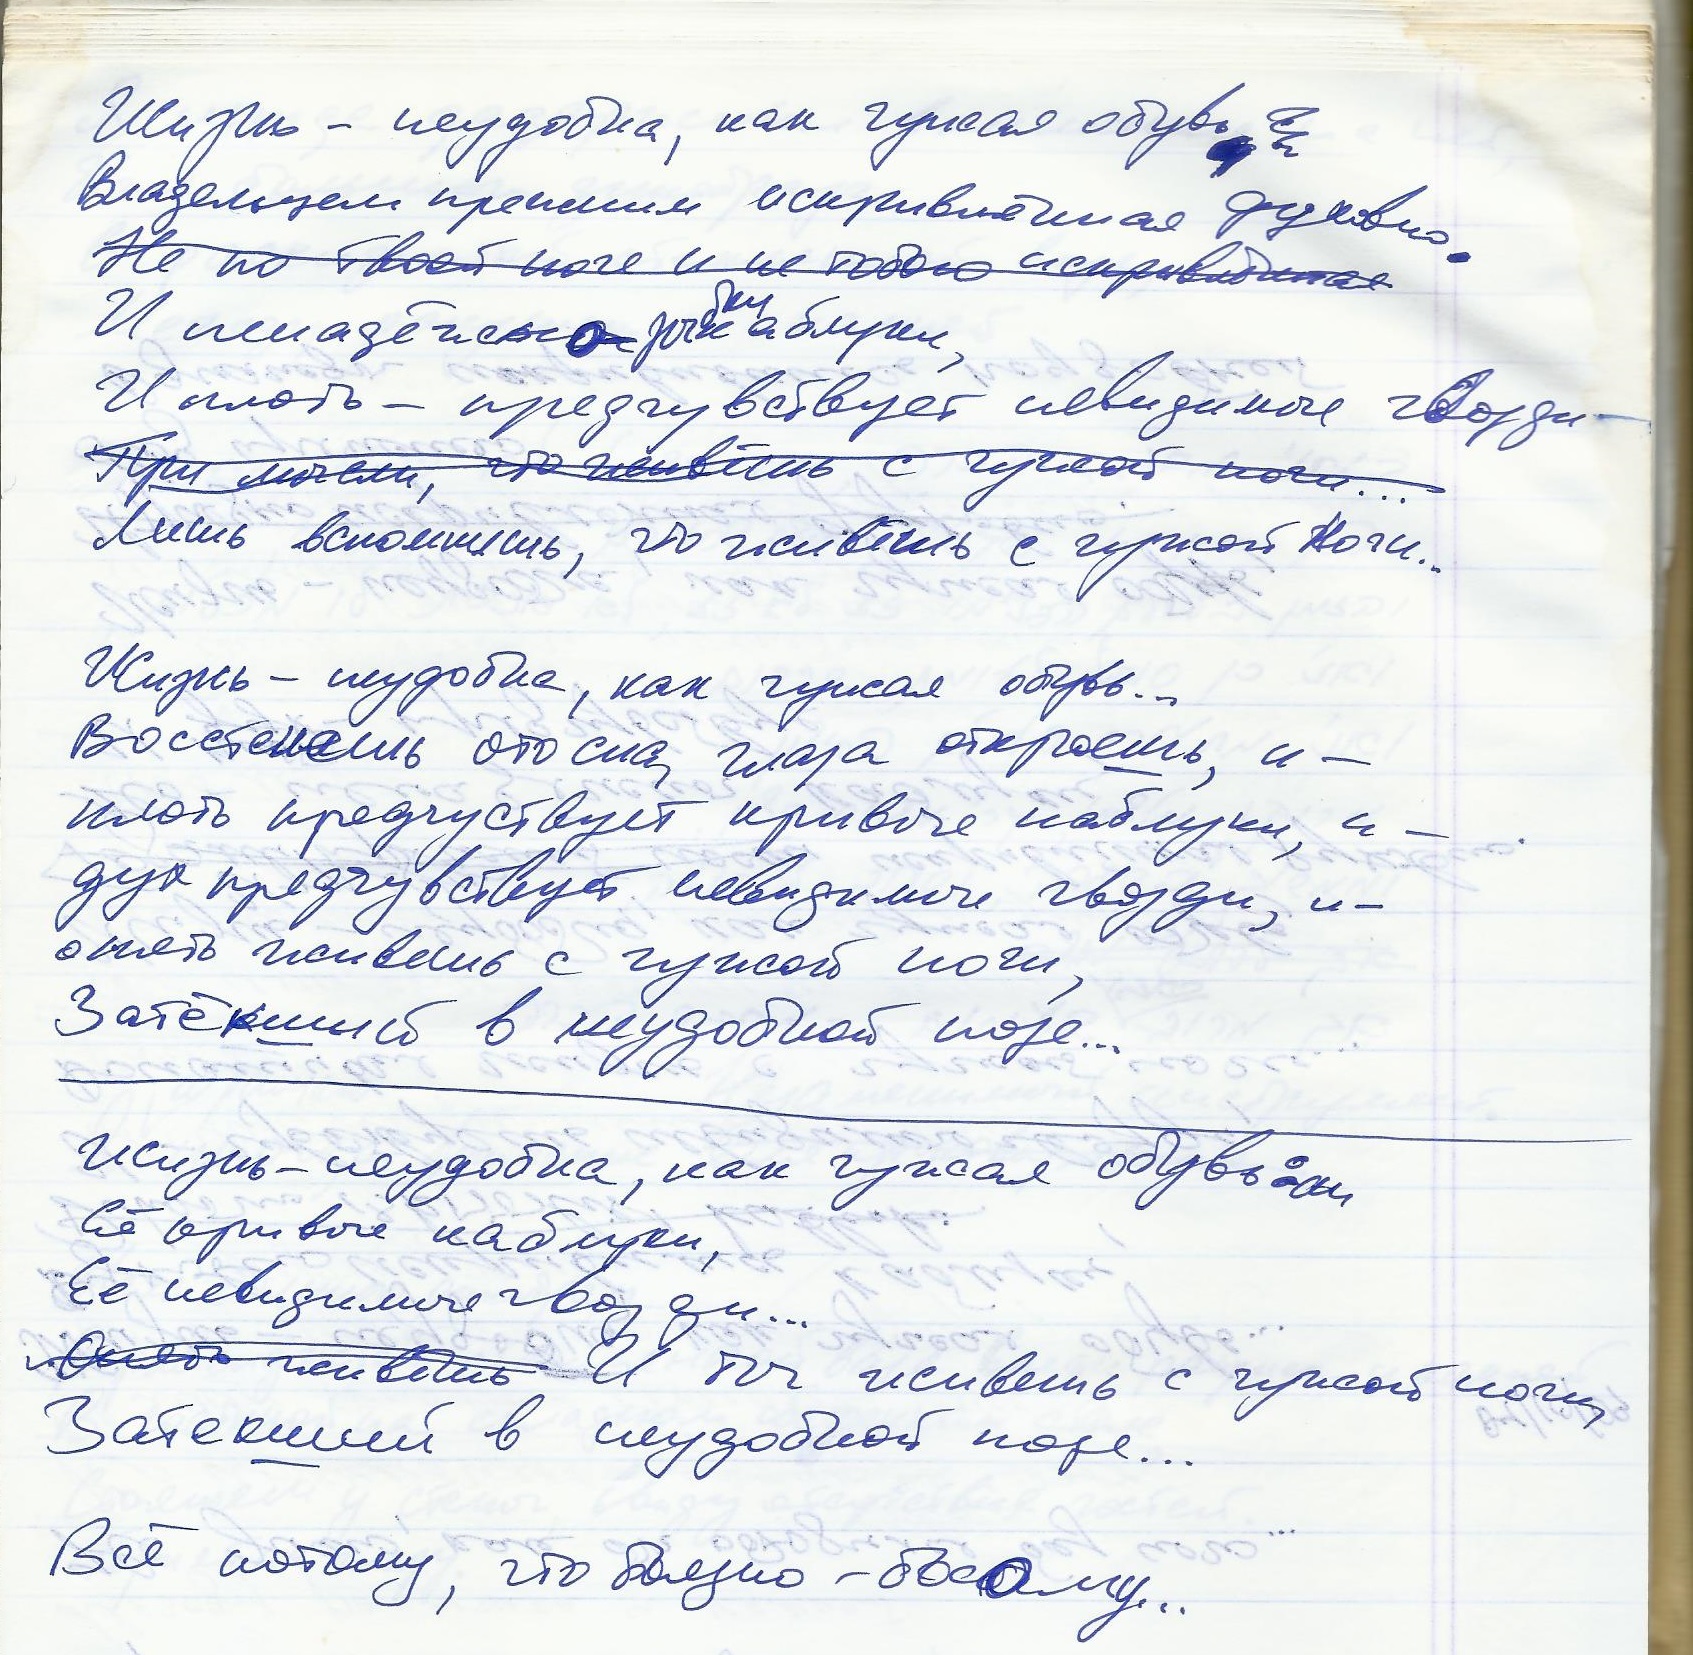 Жизнь – неудобна, как чужая обувь,
Владельцем прежним искривлённая духовно.
Не по твоей ноге и не тобою искривлённая
И ненадёжно зыбки каблуки,
И плоть – предчувствует невидимые гвозди –
При мысли, что живёшь с чужой ноги...
Лишь вспомнишь, что живёшь с чужой Ноги...
Жизнь – неудобна, как чужая обувь...
Восстанешь ото сна, глаза откроешь, и –
плоть предчуствует кривые каблуки, и –
дух предчувствует невидимые гвозди, и –
опять живёшь с чужой ноги,
Затёкший в неудобной позе...
Жизнь – неудобна, как чужая обувь:
Её кривые каблуки,
Её невидимые гвозди...
Опять живёшь И ты живешь с чужой ноги,
Затекший в неудобной позе...
Всё потому, что боязно – босому...